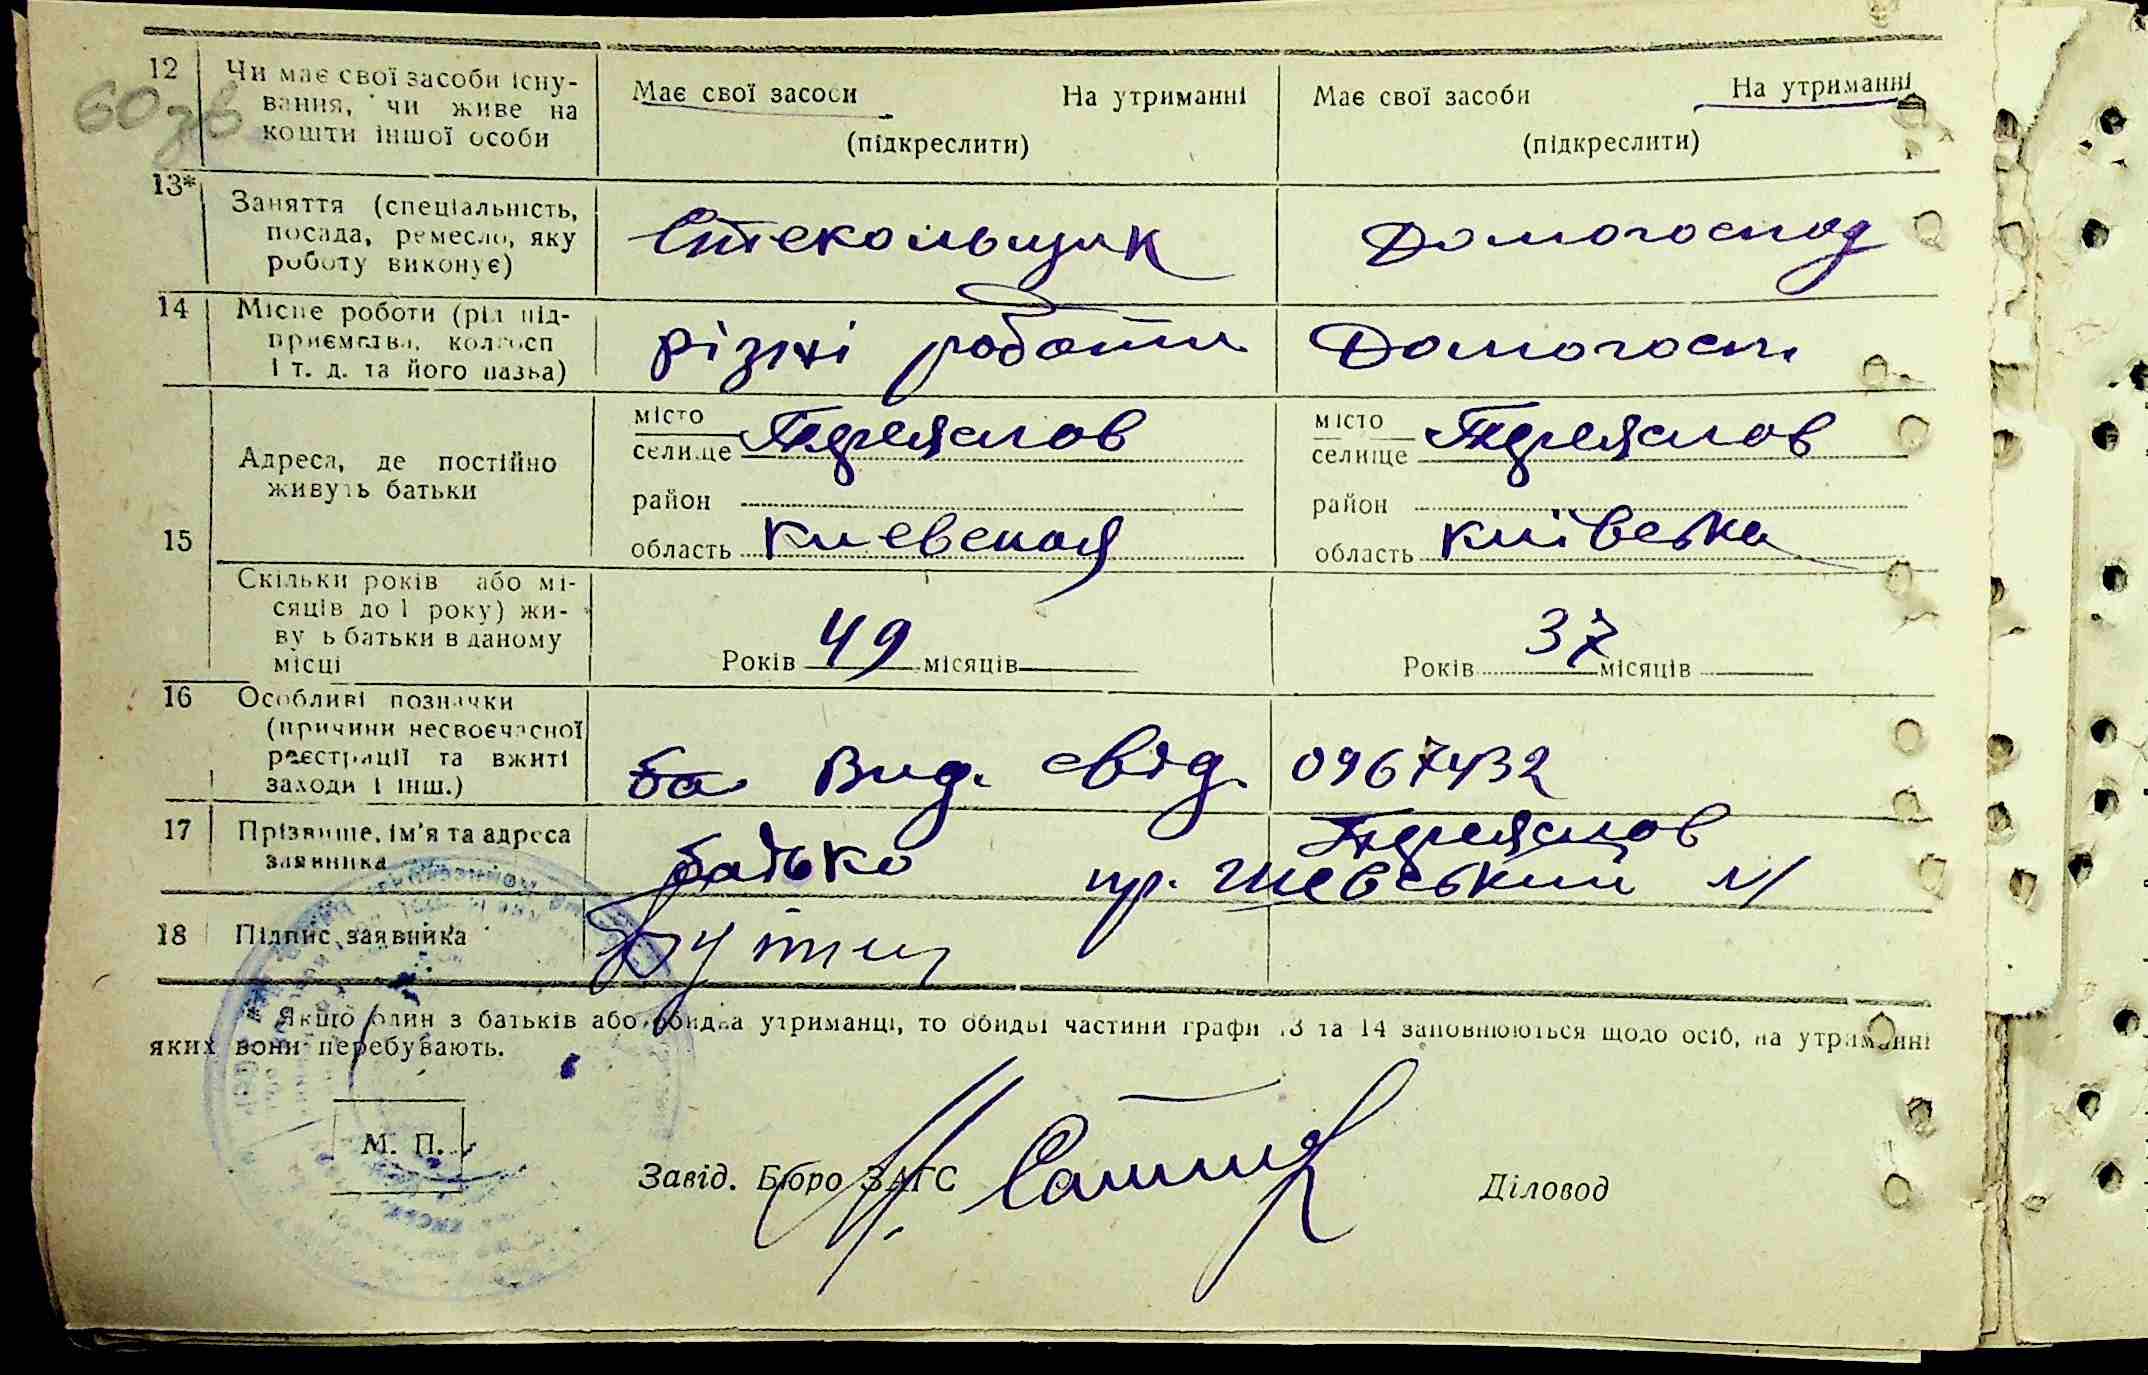 60 зв
12 Чи має свої засоби існування, чи живе на кошти іншої особи
Має свої засоби На утриманні
(підкреслити)
Має свої засоби На утриманні
(підкреслити)
13* Заняття (спеціальність,
посада, ремесло, яку
роботу виконує)
Стекольщик
Домогоспод
14 Місце роботи (рід під-
приємства, колгосп
і т. д. та його назва)
різні роботи
Домогосп
15
Адреса, де постійно
живуть батьки
місто
селище
район
область Киевская
місто
селище
район
область Київська
Скільки років або мі-
сяців до 1 року) жи-
вуть батьки в даному
місці
Років 49 місяців
Років 37 місяців
16 Особливі позначки
(причини несвоєчасної
реєстрації та вжиті
заходи і інш.)
ба Вид. свід. 0967432
17 Прізвище, ім'я та адреса
заявника
батько
пр.
18 Підпис заявника
Якщо один з батьків або обидва утриманці, то обидві частини графи 13 та 14 заповнюються щодо осіб, на утриманні
яких вони перебувають.
М. П.
Завід. Бюро ЗАГС
Діловод